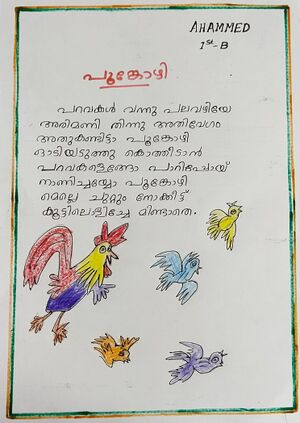 AHAMMED
1st-B
പൂങ്കോഴി
പറവകൾ വന്നു പലവഴിയേ
അരിമണി തിന്നു അതിവേഗം
അതുകണ്ടിട്ടാ പൂങ്കോഴി
ഓടിയടുത്തു കൊത്തീടാൻ
പറവകളെങ്ങോ പാറിപ്പോയ്
നാണിച്ചയ്യോ പൂങ്കോഴി
മെല്ലെ ചുറ്റും നോക്കീട്ട്
കൂട്ടിലൊളിച്ചേ മിണ്ടാതെ.